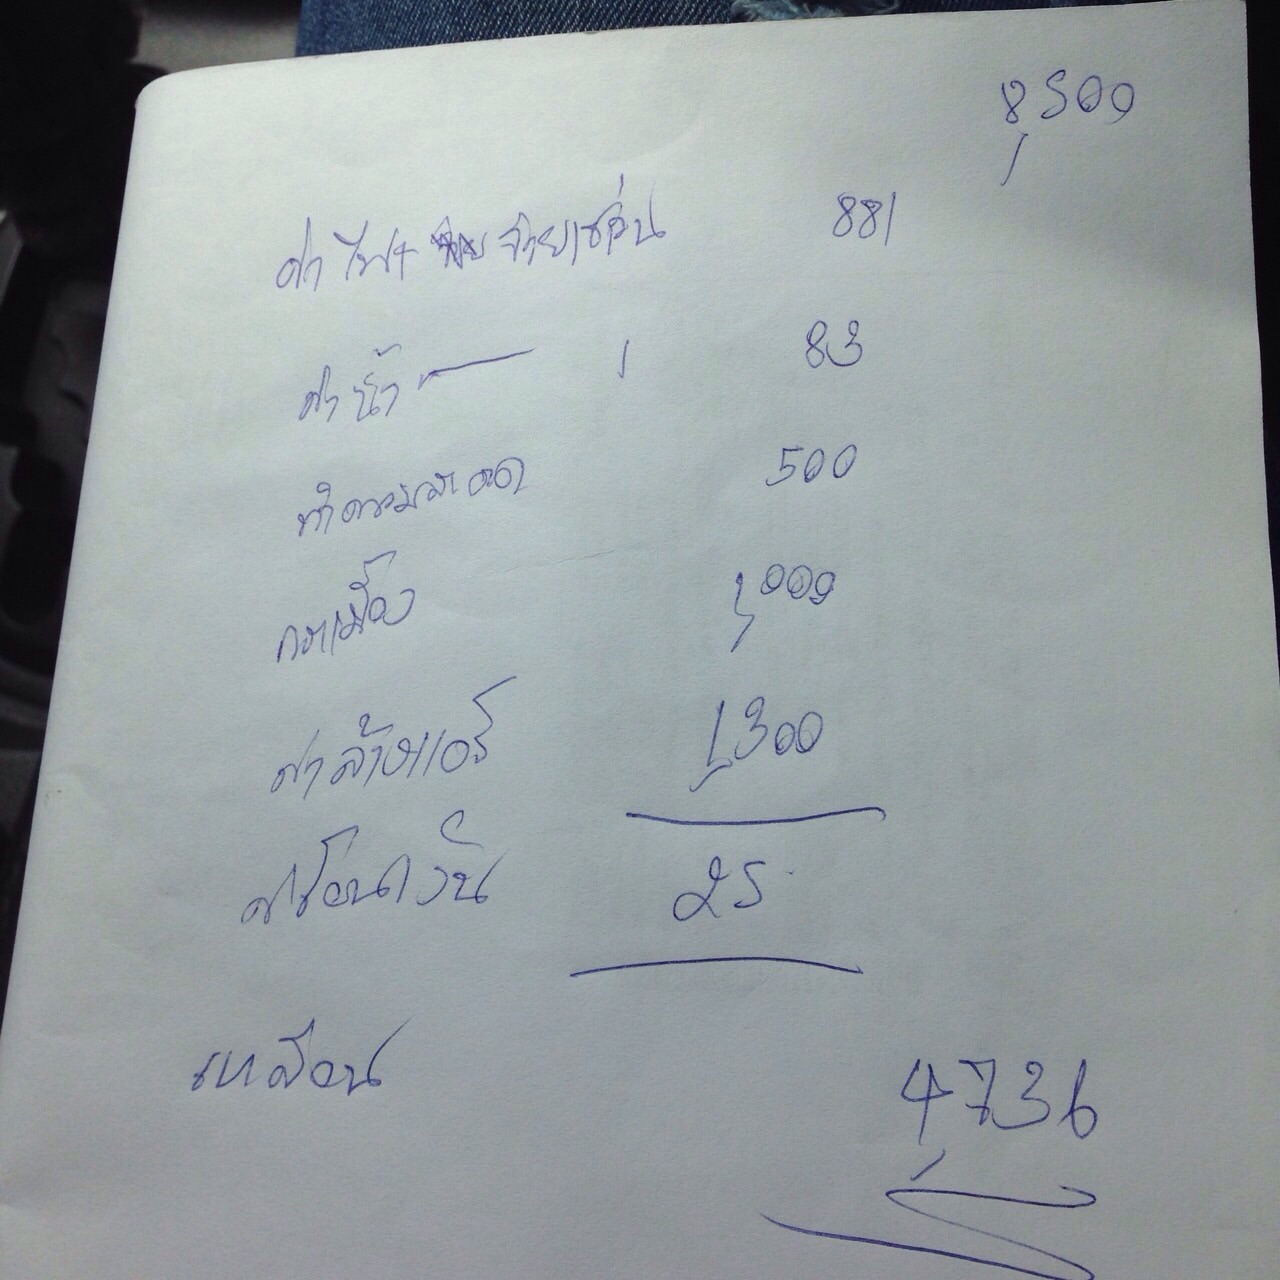 8,500
ค่าไฟ+ จ่ายเซเว่น 881
ค่าน้ำ 83
ทำความสะอาด 500
กระเบื้อง 1,000
ค่าล้างแอร์ 1,300
ค่าโอนเงิน 25
เหลือ 4,736